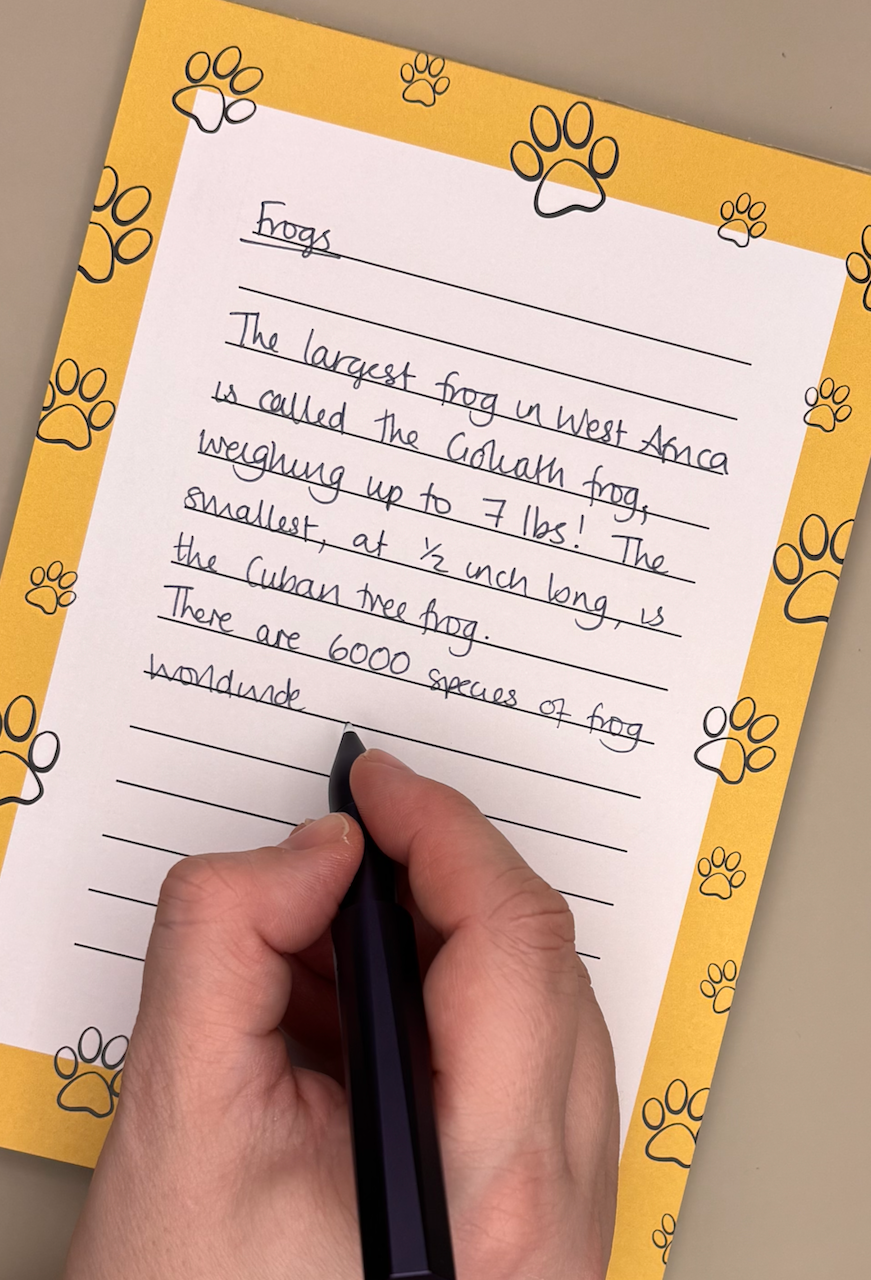 Frogs
The largest frog in West Africa
is called the Goliath frog,
weighing up to 7 lbs! The
smallest, at ½ inch long, is
the Cuban tree frog.
There are 6000 species of frog
worldwide